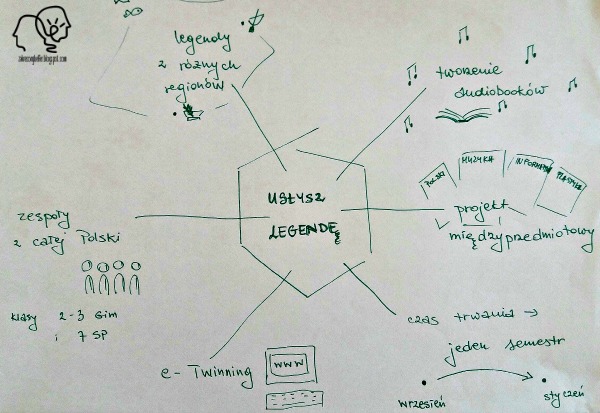 zakreconybelfer.blogspot.com
legendy
z różnych
regionów
tworzenie
audiobooków
USŁYSZ
LEGENDĘ
POLSKI
MUZYKA
INFORMATYKA
PLASTYKA
projekt
międzyprzedmiotowy
zespoły
z całej Polski
klasy 2-3 Gim
i 7 SP
e-Twinning
WWW
czas trwania →
jeden semestr
wrzesień
styczeń